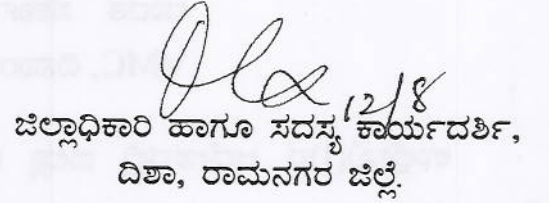 12/8
ಜಿಲ್ಲಾಧಿಕಾರಿ ಹಾಗೂ ಸದಸ್ಯ ಕಾರ್ಯದರ್ಶಿ,
ದಿಶಾ, ರಾಮನಗರ ಜಿಲ್ಲೆ.